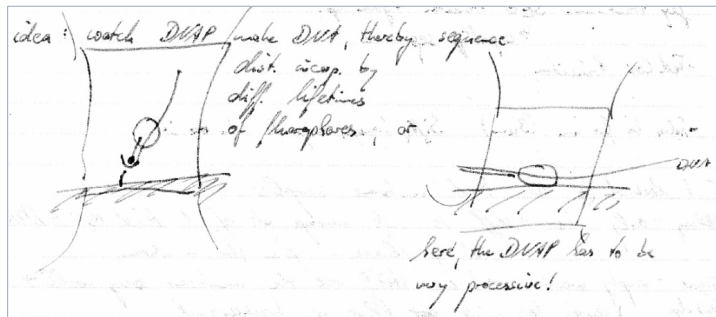 idea: watch DNAP make DNA, thereby sequence
dist. incorp. by
diff. lifetimes
of fluorophores, or
DNA
here, the DNAP has to be
very processive!